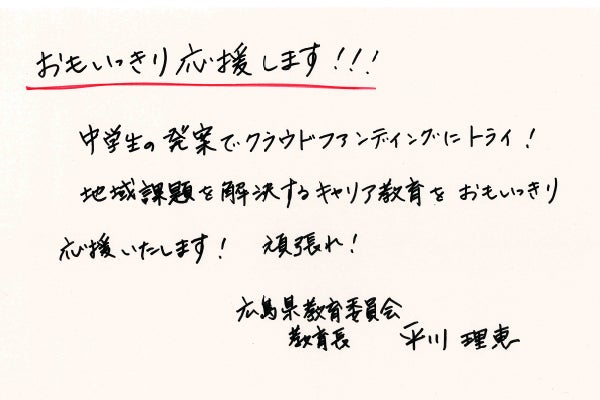 おもいっきり応援します!!!
中学生の発案でクラウドファンディングにトライ!
地域課題を解決するキャリア教育をおもいっきり
応援いたします! 頑張れ!
広島県教育委員会
教育長 平川 理恵